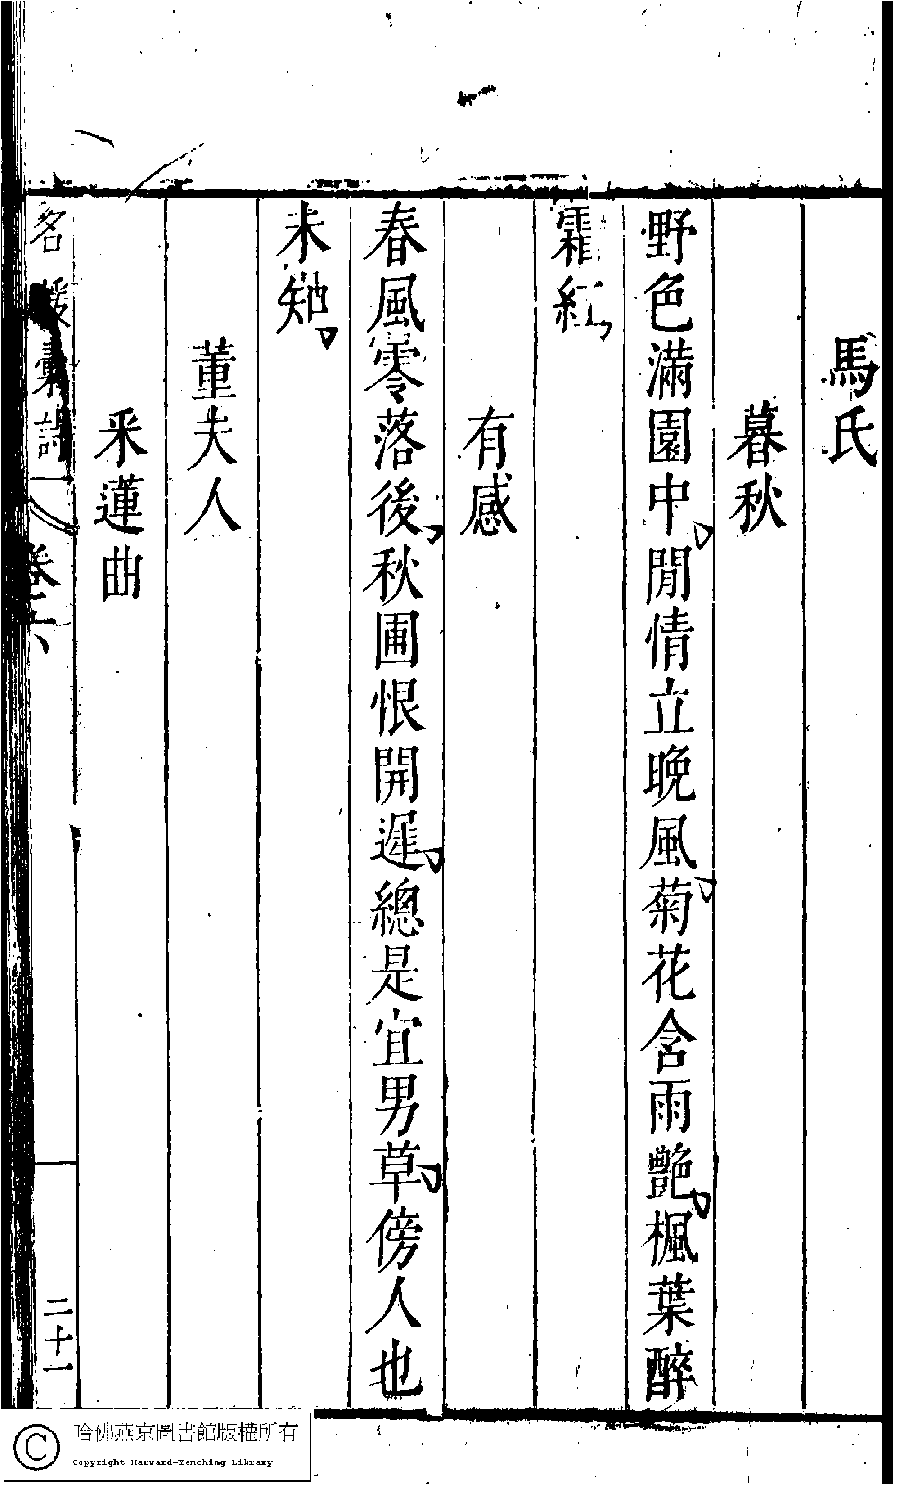 馬氏
暮秋
野色滿園中閒情立晚風菊花含雨艷楓葉醉
霜紅
有感
春風零落後秋圃恨開遲總是宜男草傍人也
未知
董夫人
采蓮曲
名媛彙詩
卷六
二十一
哈佛燕京圖書館版權所有
Copyright Harvard-Yenching Library